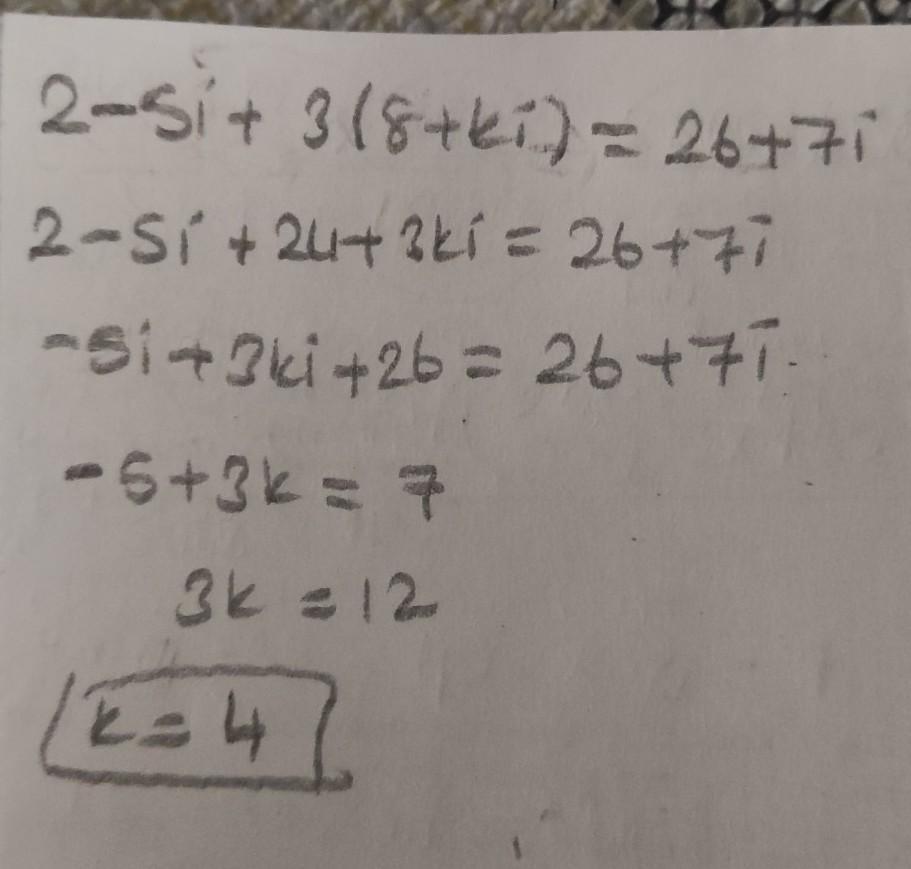 2-5i+ 3(8+ki) = 26+7i
2-5i +24+3ki = 26+7i
-5i+3ki+26 = 26+7i.
-5+3k = 7
3k = 12
k = 4